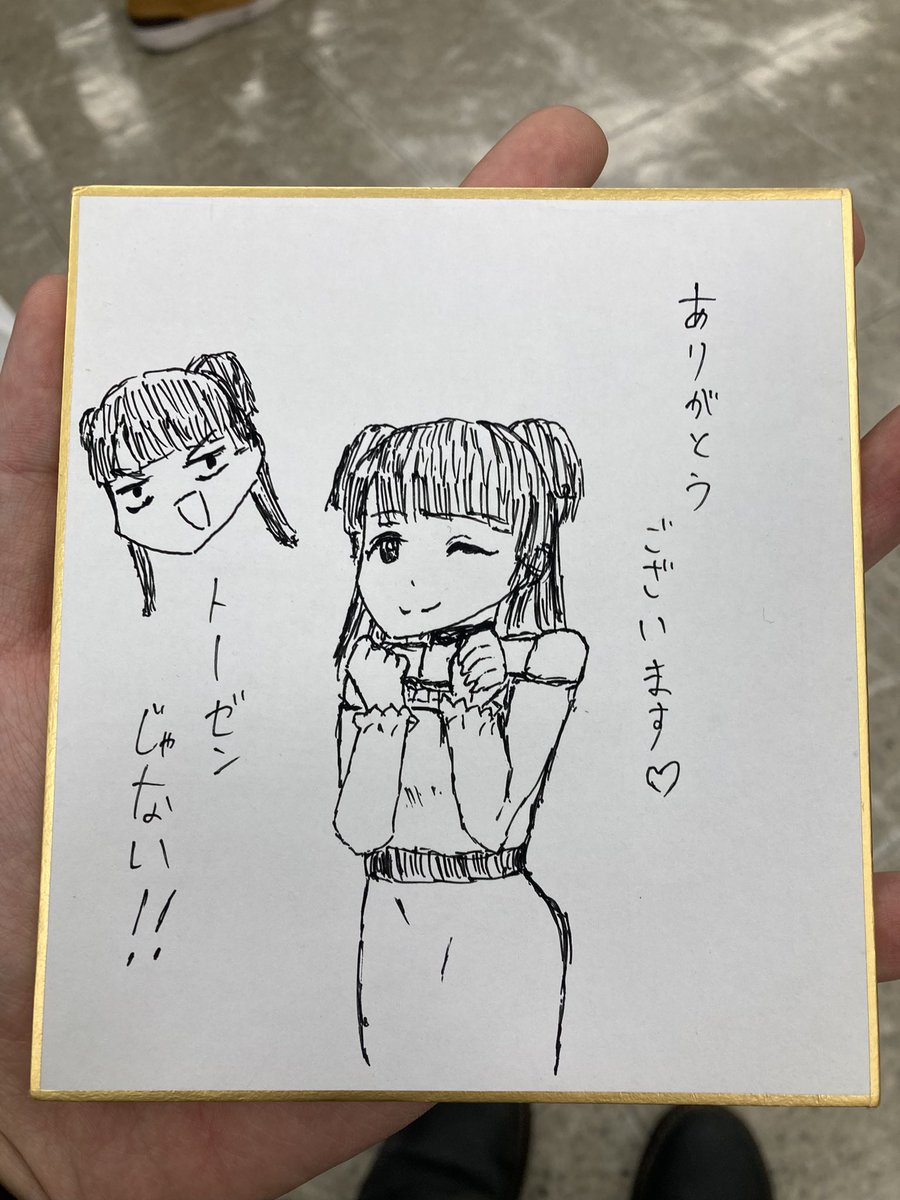 ありがとう
ございます♡
トーゼン
じゃない!!